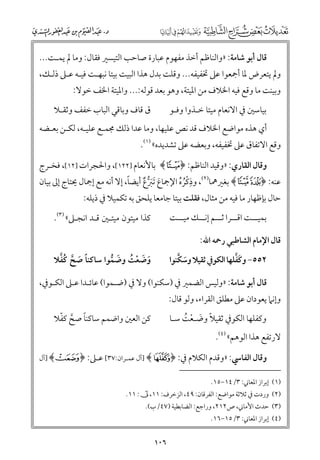 قال أبو شامة: «والناظم أخذ مفهوم عبارة صاحب التيسير فقال: وما لم يمت...
ولم يتعرض لما أجمعوا على تخفيفه... وقلت بدل هذا البيت بيتا نبهت فيه على ذلك،
وبينت ما وقع فيه الخلاف من الميتة، وهو بعد قوله:...والميتة الخف خولا:
بياسين في الانعام ميتا خذوا وفو ق قاف وباقي الباب خفف وثقلا
أي هذه مواضع الخلاف قد نص عليها، وما عدا ذلك مجمع عليه، لكن بعضه
وقع الاتفاق على تخفيفه، وبعضه على تشديده»(١).
وقال القاري: «وقيد الناظم: ﴿مَيْتًا﴾ بالأنعام [١٢٢]، والحجرات [١٢]، فخرج
عنه: ﴿بَلْدَةً مَّيْتًا﴾ بغيرهما(٢)، وذِكْرُه الإجماعَ لِرُبَّ أيضاً، إلا أنه مع إجمال يحتاج إلى بيان
حال بإظهار ما فيه من مثال، فقلت بيتا جامعا يلحق به تكميلا في ذيله:
بميت اقرا ثم إنك ميت كذا ميتون ميتين قد انجلى»(٣).
قال الإمام الشاطبي رحمه الله:
٥٥٢- وكَفَّلها الكوفي ثقيلا وسكنوا وضَعْتُ وضَمُّوا ساكناً صَحَّ كُفَّلا
قال أبو شامة: «وليس الضمير في (سكنوا) ولا في (ضموا) عائدا على الكوفي،
وإنما يعودان على مطلق القراء، ولو قال:
وكفلها الكوفي ثقيلاً وضَعْتُ سا كن العين واضمم ساكناً صحَّ كفّلا
لارتفع هذا الوهم»(٤).
وقال الفاسي: «وقدم الكلام في: ﴿وَكَفَّلَهَا﴾ [آل عمران:٣٧] على: ﴿وَضَعَتْ﴾ [آل
(١) إبراز المعاني: ٣/ ١٤-١٥.
(٢) وردت في ثلاثة مواضع: الفرقان: ٤٩، الزخرف: ١١، ق: ١١.
(٣) حدث الأماني، ص٢١٢، وراجع: الضابطية (٤٧/ ب).
(٤) إبراز المعاني: ٣/ ١٥-١٦.
١٠٦